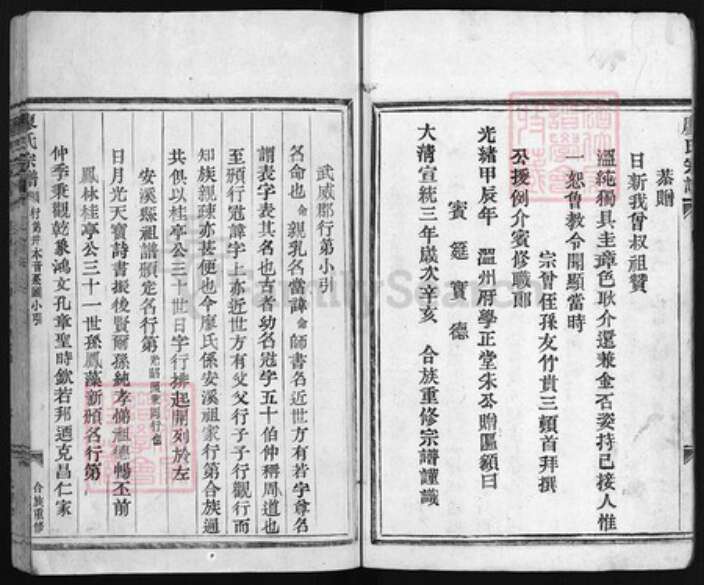 廖氏宗譜
恭贈
日新我曾叔祖贊
溫純獨具圭璋色耿介還兼金石姿持己接人惟
一恕魯教令開顯當時
宗曾侄孫友竹貴三頓首拜撰
公援例介賓修職郎
光緒甲辰年 溫州府學正堂朱公贈匾額曰
賓筵寶德
大清宣統三年歲次辛亥 合族重修宗譜謹識
武威郡行第小引
名命也命親乳名當諱命師書名近世方有若字尊名
謂表字表其名也古者幼名冠字五十伯仲稱周道也
至頒行冠諱字上亦近世方有父父行子子行觀行而
知族親疎亦甚便也今廖氏係安溪祖家行第合族通
共俱以桂亭公三十世日字行排起開列於左
安溪縣祖譜頒定名行第
日月光天寶詩書振後賢爾孫純孝悌祖德暢丕前
鳳林桂亭公三十一世孫鳳藻新頒名行第
仲季秉觀乾象鴻文孔章聖時欽若邦迺克昌仁家
廖氏宗譜
合族重修
FamilySearch